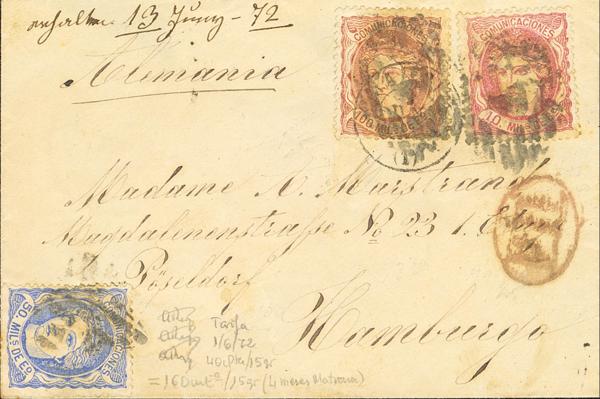 erhalten 13 Juny - 72
Alemania
COMUNICACIONES
100 MILS DE E
COMUNICACIONES
10. MILS DE E
Madame A. Marstrand
Magdalenenstrasse No 23 1.
Pöseldorf
Hamburgo
COMUNICACIONES
50. MILS DE EO
Tarifa
1/6/72
40 /15gr
/15gr (4